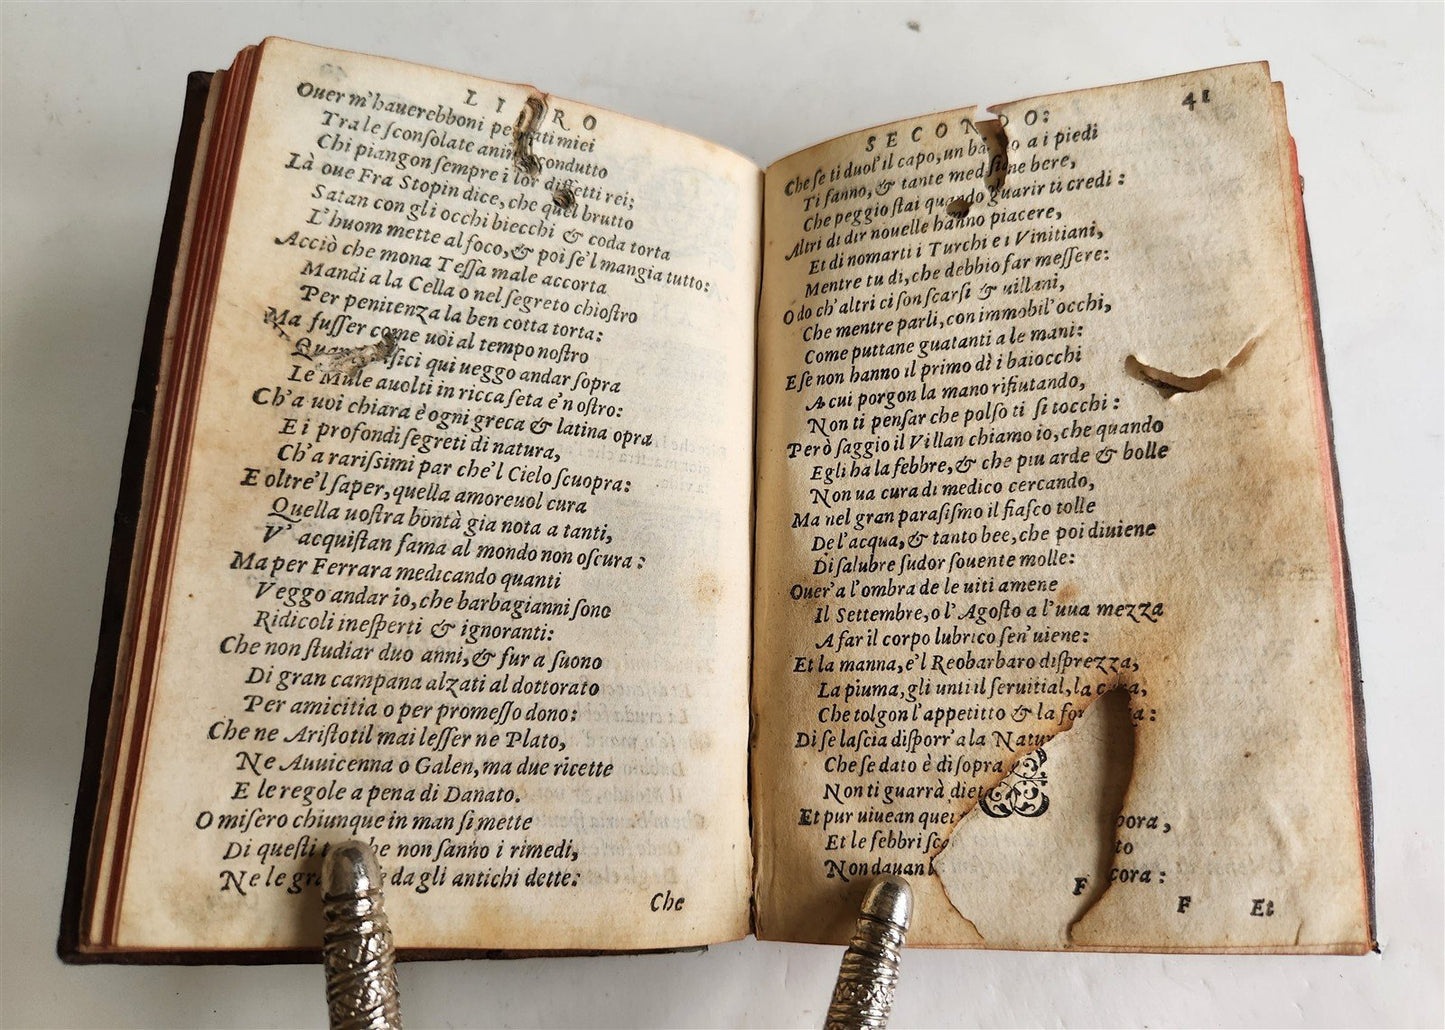 LIBRO
Ouer m'hauerebboni pe ati miei
Tra le ſconſolate anime condutto
Chi piangon ſempre i lor diffetti rei;
Là oue Fra Stopin dice, che quel brutto
Satan con gli occhi biecchi & coda torta
L'huom mette al foco, & poi ſe'l mangia tutto:
Acciò che mona Teſſa male accorta
Mandi a la Cella o nel ſegreto chioſtro
Per penitenza la ben cotta torta:
Ma fuſſer come uoi al tempo noſtro
ſici qui ueggo andar ſopra
Le Mule auolti in ricca ſeta e'n oſtro:
Ch'a uoi chiara è ogni greca & latina opra
E i profondi ſegreti di natura,
Ch'a rariſsimi par che'l Cielo ſcuopra:
E oltre'l ſaper, quella amoreuol cura
Quella uoſtra bontà gia nota a tanti,
V' acquiſtan fama al mondo non oſcura:
Ma per Ferrara medicando quanti
Veggo andar io, che barbagianni ſono
Ridicoli ineſperti & ignoranti:
Che non ſtudiar duo anni, & fur a ſuono
Di gran campana alzati al dottorato
Per amicitia o per promeſſo dono:
Che ne Ariſtotil mai leſſer ne Plato,
Ne Auuicenna o Galen, ma due ricette
E le regole a pena di Danato.
O miſero chiunque in man ſi mette
Di queſti t che non ſanno i rimedi,
Ne le gra da gli antichi dette:
Che
SECONDO:
41
Che ſe ti duol' il capo, un ba o a i piedi
Ti fanno, & tante medicine bere,
Che peggio ſtai quando guarir ti credi:
Altri di dir nouelle hanno piacere,
Et di nomarti i Turchi e i Vinitiani,
Mentre tu di, che debbio far meſſere:
Odo ch'altri ci ſon ſcarſi & uillani,
Che mentre parli, con immobil' occhi,
Come puttane guatanti a le mani:
E ſe non hanno il primo dì i baiocchi
A cui porgon la mano rifiutando,
Non ti penſar che polſo ti ſi tocchi:
Però ſaggio il Villan chiamo io, che quando
Egli ha la febbre, & che piu arde & bolle
Non ua cura di medico cercando,
Ma nel gran paraſiſmo il fiaſco tolle
De l'acqua, & tanto bee, che poi diuiene
Di ſalubre ſudor ſouente molle:
Ouer' a l'ombra de le uiti amene
Il Settembre, o l' Agoſto a l'uua mezza
A far il corpo lubrico ſen' uiene:
Et la manna, e'l Reobarbaro diſprezza,
La piuma, gli unti il ſeruitial, la
Che tolgon l'appetitto & la for a:
Di ſe laſcia diſporr' a la Natur
Che ſe dato è di ſopra
Non ti guarrà diet
Et pur uiuean quei bora,
Et le febbri ſc to
Non dauant cora:
F
F Et